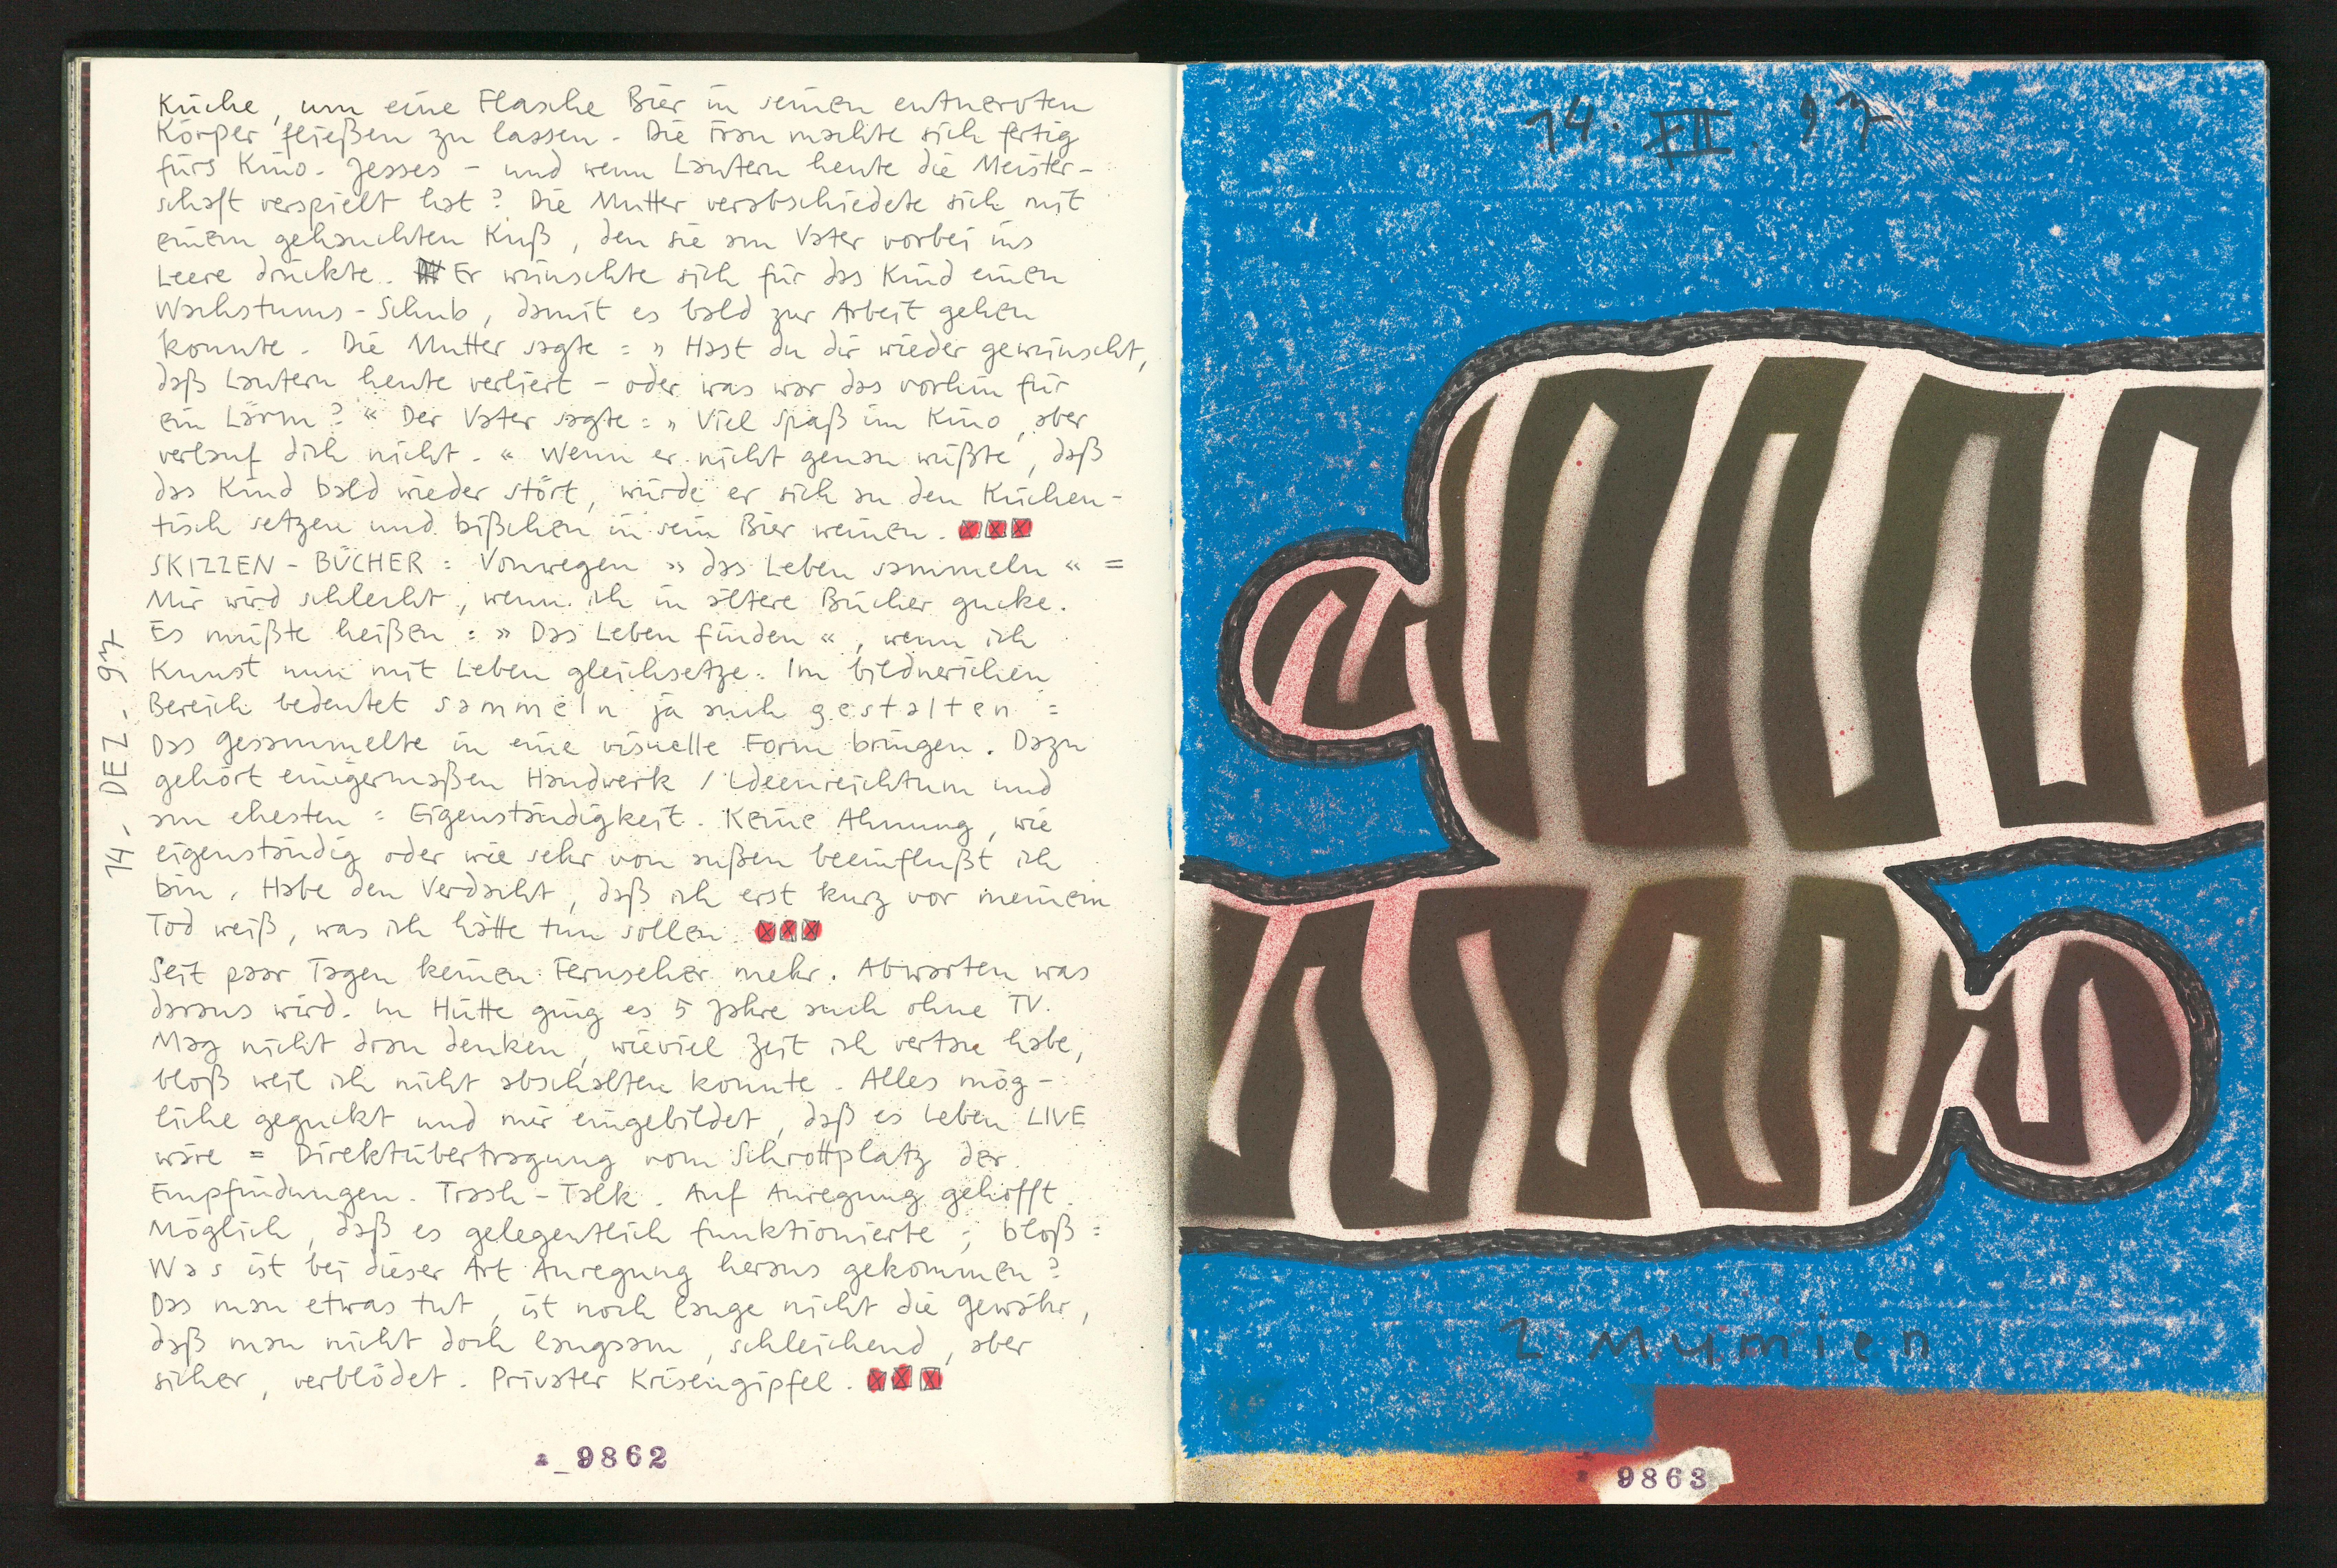 Küche, um eine Flasche Bier in seinen entnervten
Körper fließen zu lassen. Die Frau machte sich fertig
fürs Kino. Jesses – und wenn Lautern heute die Meister-
schaft verspielt hat? Die Mutter verabschiedete sich mit
einem gehauchten Kuß, den sie am Vater vorbei ins
Leere drückte. Er wünschte sich für das Kind einen
Wachstums-Schub, damit es bald zur Arbeit gehen
konnte. Die Mutter sagte: » Hast du dir wieder gewünscht,
daß Lautern heute verliert – oder was war das vorhin für
ein Lärm? « Der Vater sagte: » Viel Spaß im Kino, aber
verlauf dich nicht. « Wenn er nicht genau wüßte, daß
das Kind bald wieder stört, würde er sich an den Küchen-
tisch setzen und bißchen in sein Bier weinen.
SKIZZEN-BÜCHER: Vonwegen » das Leben sammeln « =
Mir wird schlecht, wenn ich in ältere Bücher gucke.
Es müßte heißen: » Das Leben finden «, wenn ich
Kunst nun mit Leben gleichsetze. Im bildnerichen
Bereich bedeutet sammeln ja auch gestalten =
Das Gesammelte in eine visuelle Form bringen. Dazu
gehört einigermaßen Handwerk / Ideenreichtum und
am ehesten: Eigenständigkeit. Keine Ahnung, wie
eigenständig oder wie sehr von außen beeinflußt ich
bin. Habe den Verdacht, daß ich erst kurz vor meinem
Tod weiß, was ich hätte tun sollen.
Seit paar Tagen keinen Fernseher mehr. Abwarten was
daraus wird. In Hütte ging es 5 Jahre auch ohne TV.
Mag nicht dran denken, wieviel Zeit ich vertan habe,
bloß weil ich nicht abschalten konnte. Alles mög-
liche geguckt und mir eingebildet, daß es Leben LIVE
wäre = Direktübertragung vom Schrottplatz der
Empfindungen. Trash-Talk. Auf Anregung gehofft.
Möglich, daß es gelegentlich funktionierte; bloß:
Was ist bei dieser Art Anregung heraus gekommen?
Das man etwas tut, ist noch lange nicht die Gewähr,
daß man nicht doch langsam, schleichend, aber
sicher, verblödet. Privater Krisengipfel.
14. DEZ. 97
9862
14. XII. 97
2 Mumien
9863